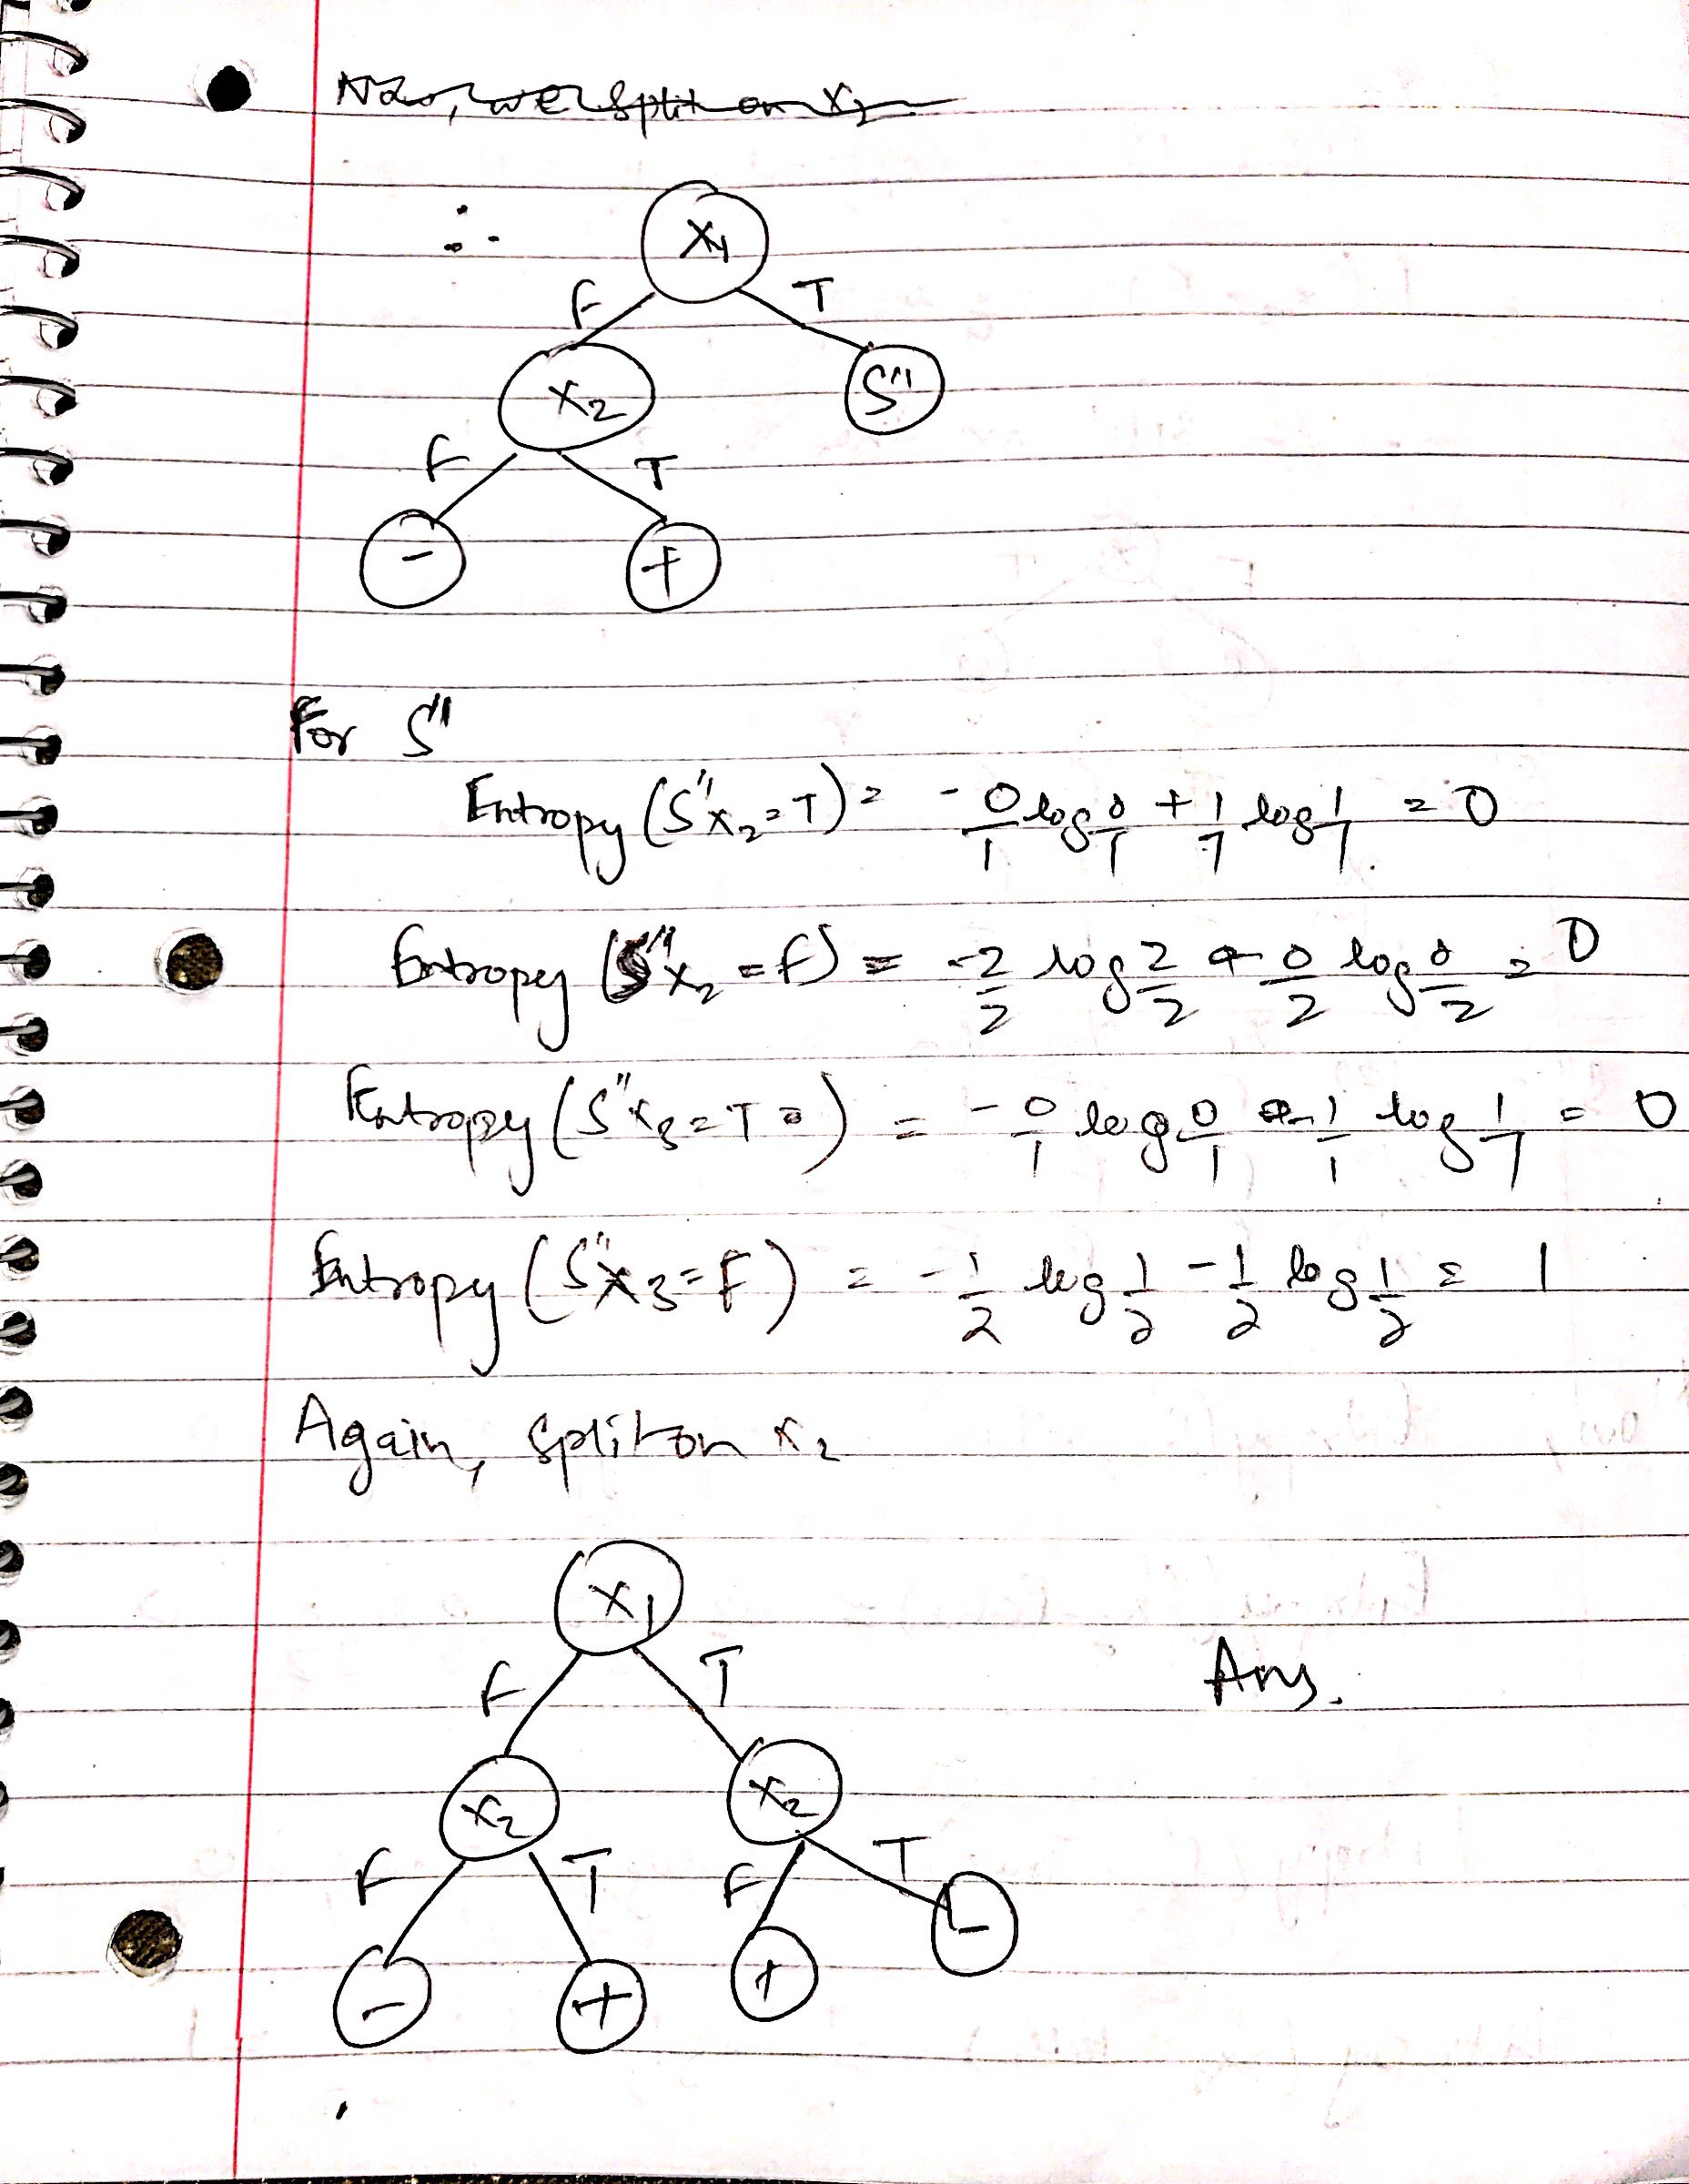 Now, we split on x₂
∴ X₁
F T
X₂ S''
F T
- +
For S''
Entropy (S''x₂=T) = -0/1 log 0/1 + 1/1 log 1/1 = 0
Entropy (S''x₂=F) = -2/2 log 2/2 - 0/2 log 0/2 = 0
Entropy (S''x₃=T) = -0/1 log 0/1 - 1/1 log 1/1 = 0
Entropy (S''x₃=F) = -1/2 log 1/2 - 1/2 log 1/2 = 1
Again, split on x₂
X₁
F T
Ans.
X₂ X₂
F T F T
- + + -